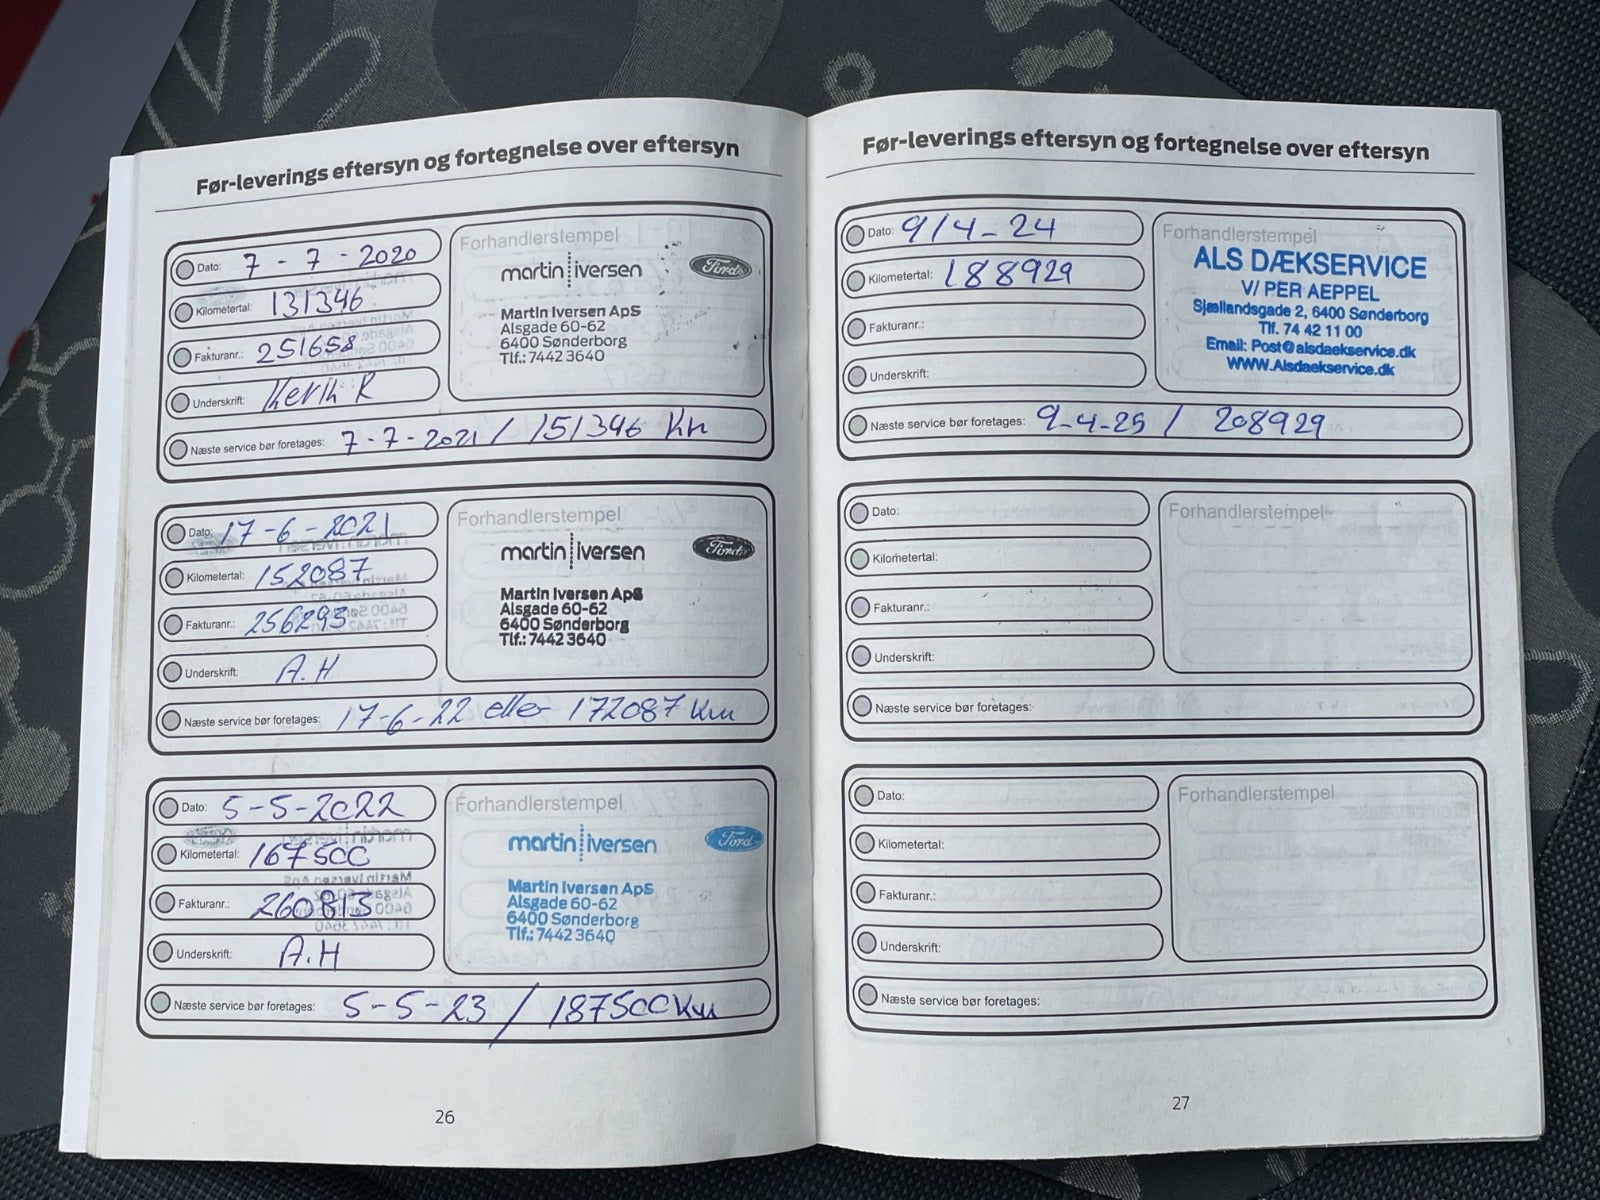 Før-leverings eftersyn og fortegnelse over eftersyn
Dato: 7 - 7 - 2020
Kilometertal: 131346
Fakturanr.: 251658
Underskrift:
Næste service bør foretages: 7-7-2021 / 151346 Km
Forhandlerstempel
martin iversen Ford
Martin Iversen ApS
Alsgade 60-62
6400 Sønderborg
Tlf.: 7442 3640
Dato: 17-6-2021
Kilometertal: 152087
Fakturanr.: 256293
Underskrift: A.H
Næste service bør foretages: 17-6-22 eller 172087 Km
Forhandlerstempel
martin iversen Ford
Martin Iversen ApS
Alsgade 60-62
6400 Sønderborg
Tlf.: 7442 3640
Dato: 5-5-2022
Kilometertal: 167500
Fakturanr.: 260813
Underskrift: A.H
Næste service bør foretages: 5-5-23 / 187500 Km
Forhandlerstempel
martin iversen Ford
Martin Iversen ApS
Alsgade 60-62
6400 Sønderborg
Tlf.: 7442 3640
26
Før-leverings eftersyn og fortegnelse over eftersyn
Dato: 9/4-24
Kilometertal: 188929
Fakturanr.:
Underskrift:
Næste service bør foretages: 9-4-25 / 208929
Forhandlerstempel
ALS DÆKSERVICE
V/ PER AEPPEL
Sjællandsgade 2, 6400 Sønderborg
Tlf. 74 42 11 00
Email: Post@alsdaekservice.dk
WWW.Alsdaekservice.dk
Dato:
Kilometertal:
Fakturanr.:
Underskrift:
Næste service bør foretages:
Forhandlerstempel
Dato:
Kilometertal:
Fakturanr.:
Underskrift:
Næste service bør foretages:
Forhandlerstempel
27